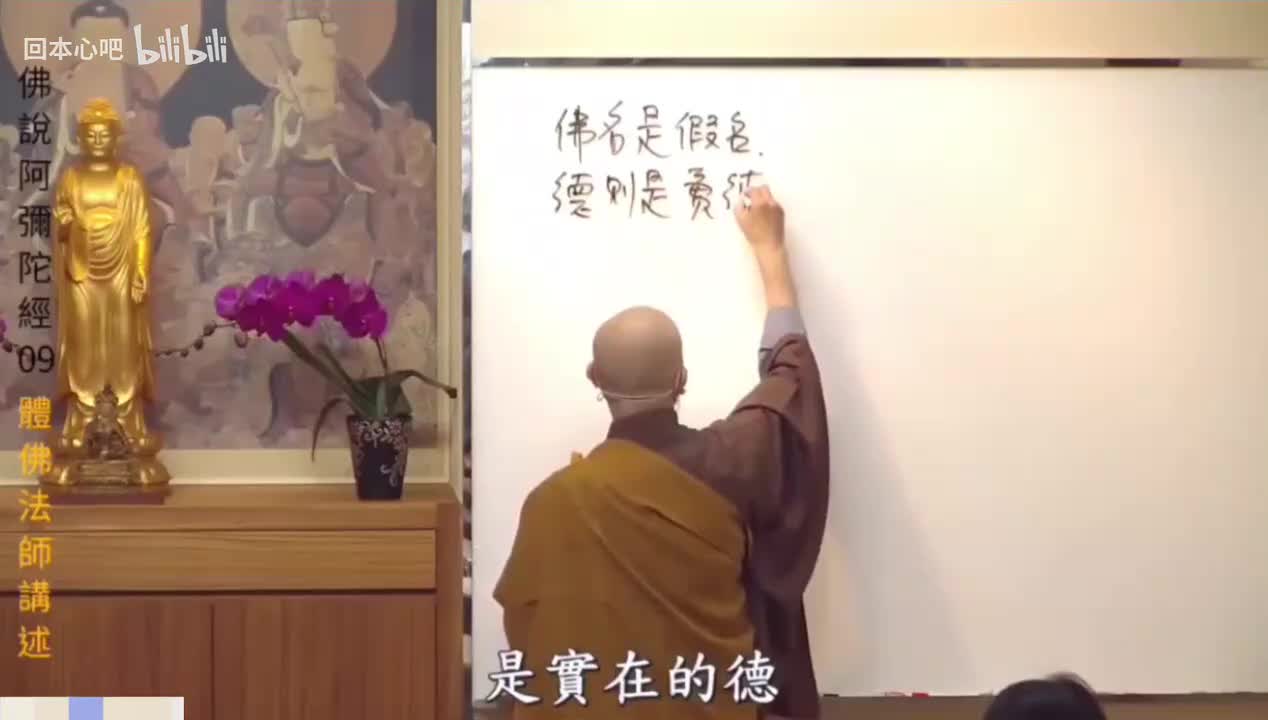 回本心吧 bilibili
佛說阿彌陀經09 體佛法師講述
佛名是假名.
德則是實德
是實在的德